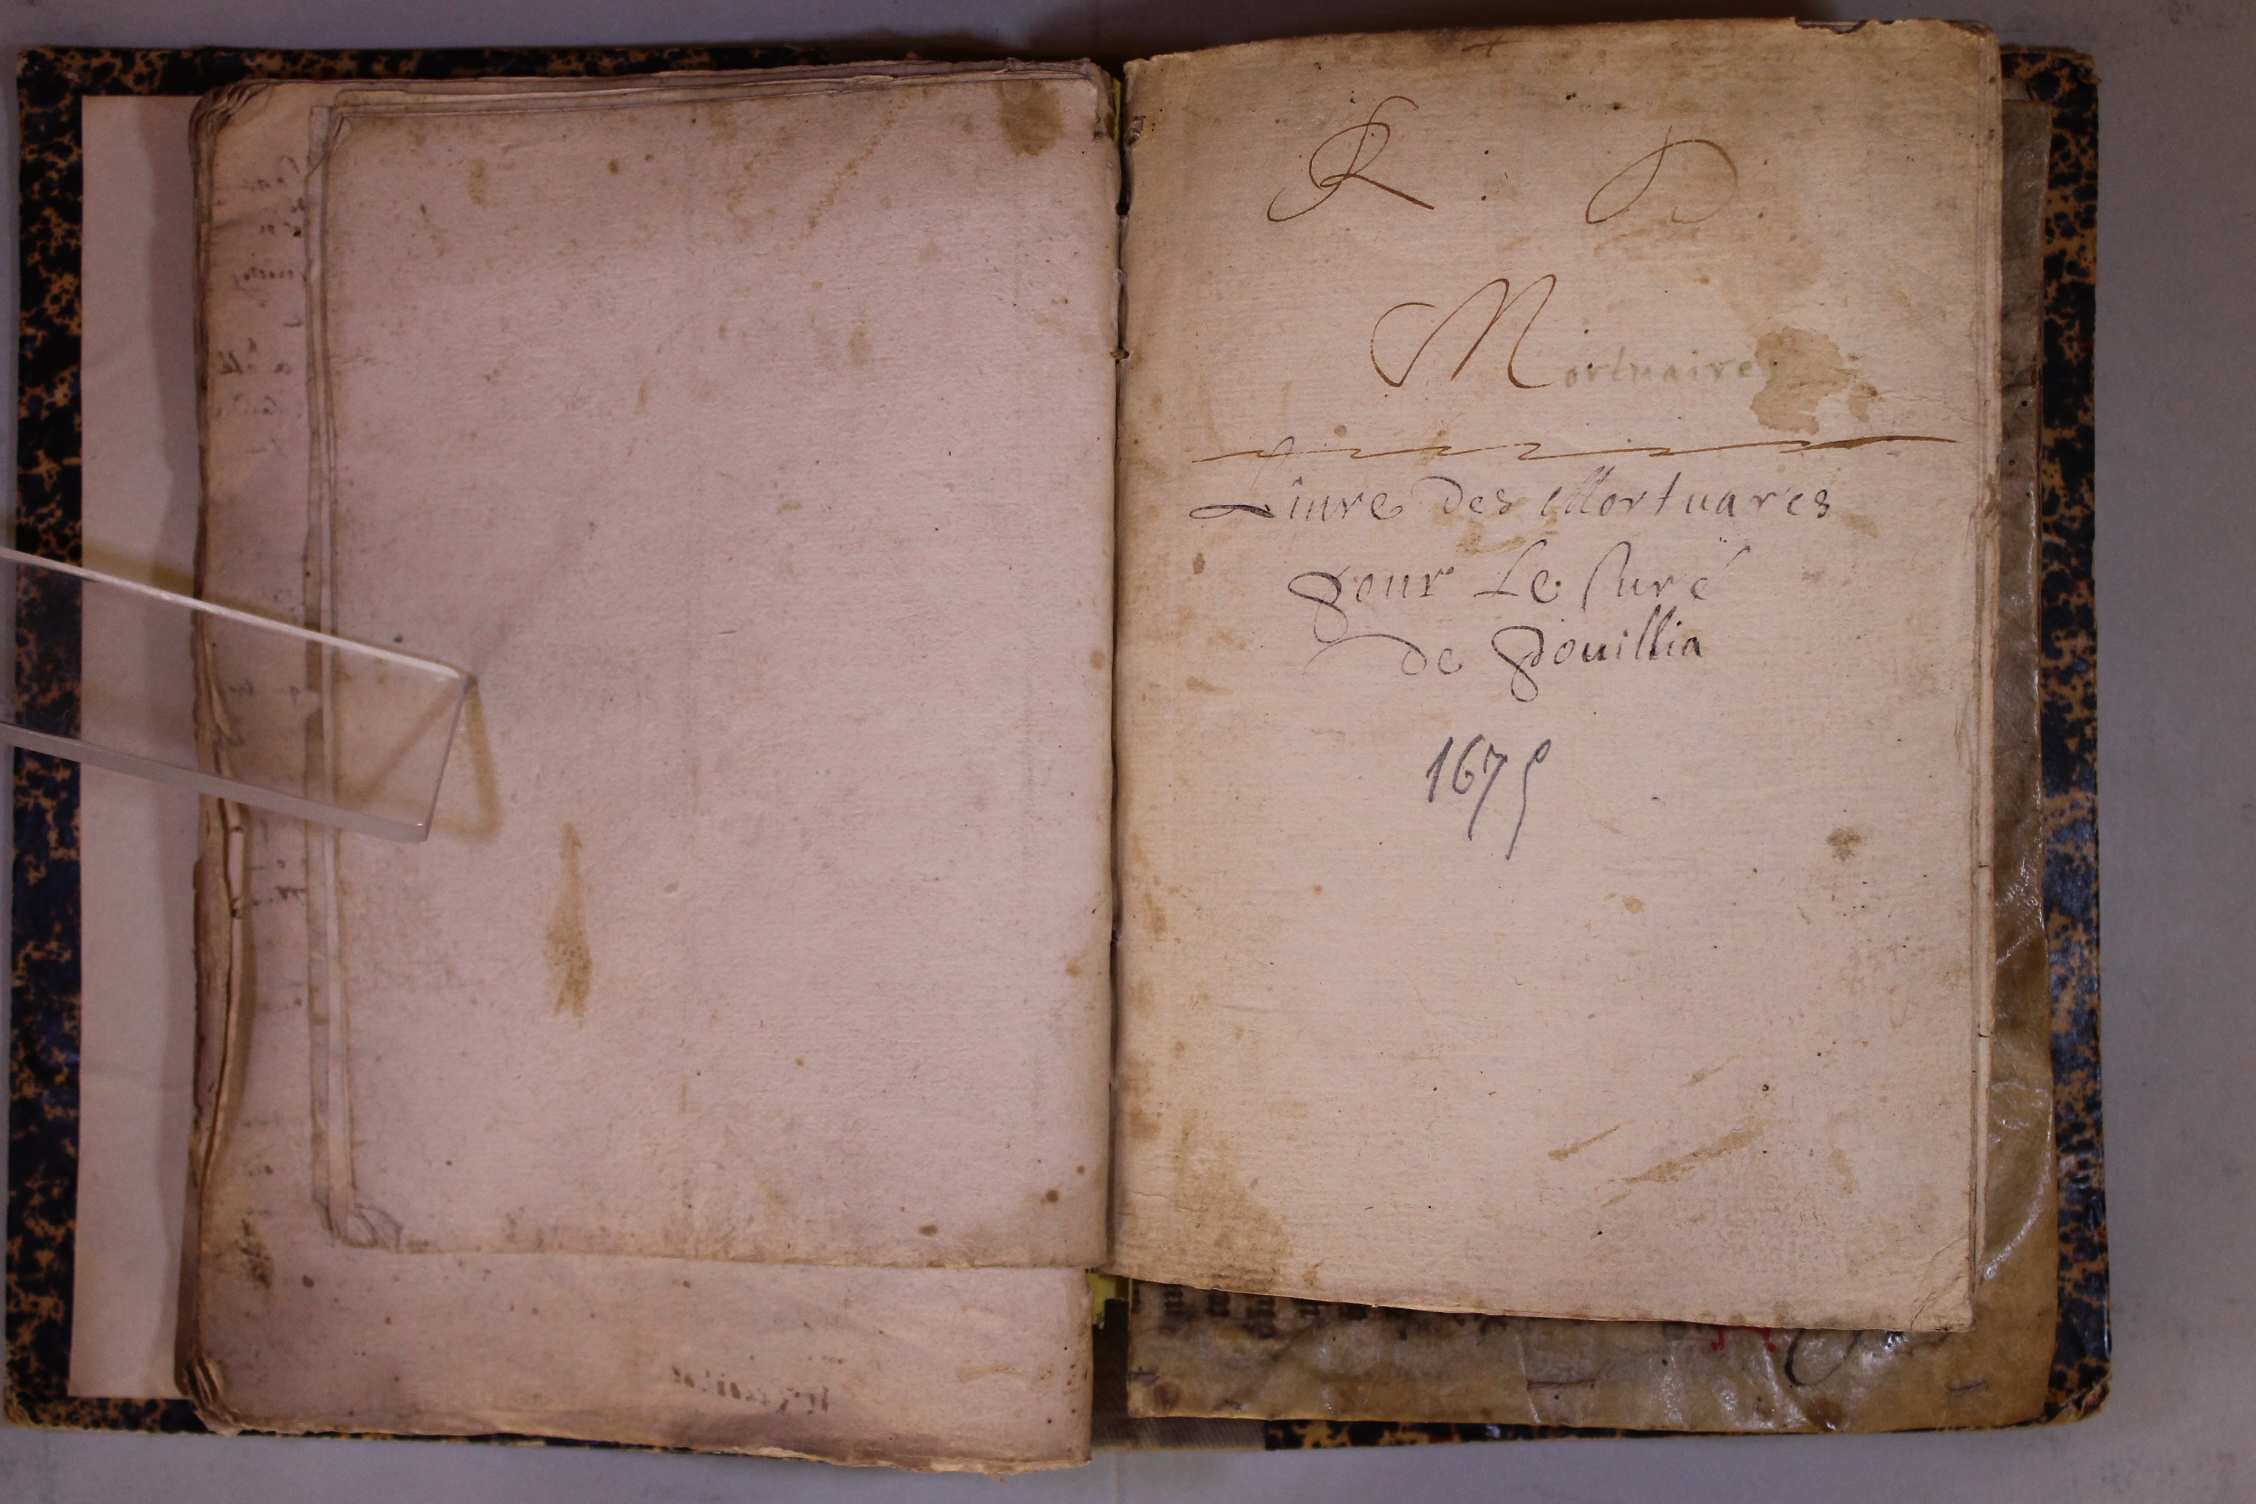 R. D.
Mortuaire
Liure des Mortuares
pour Le Curé
de Pouillia
1675